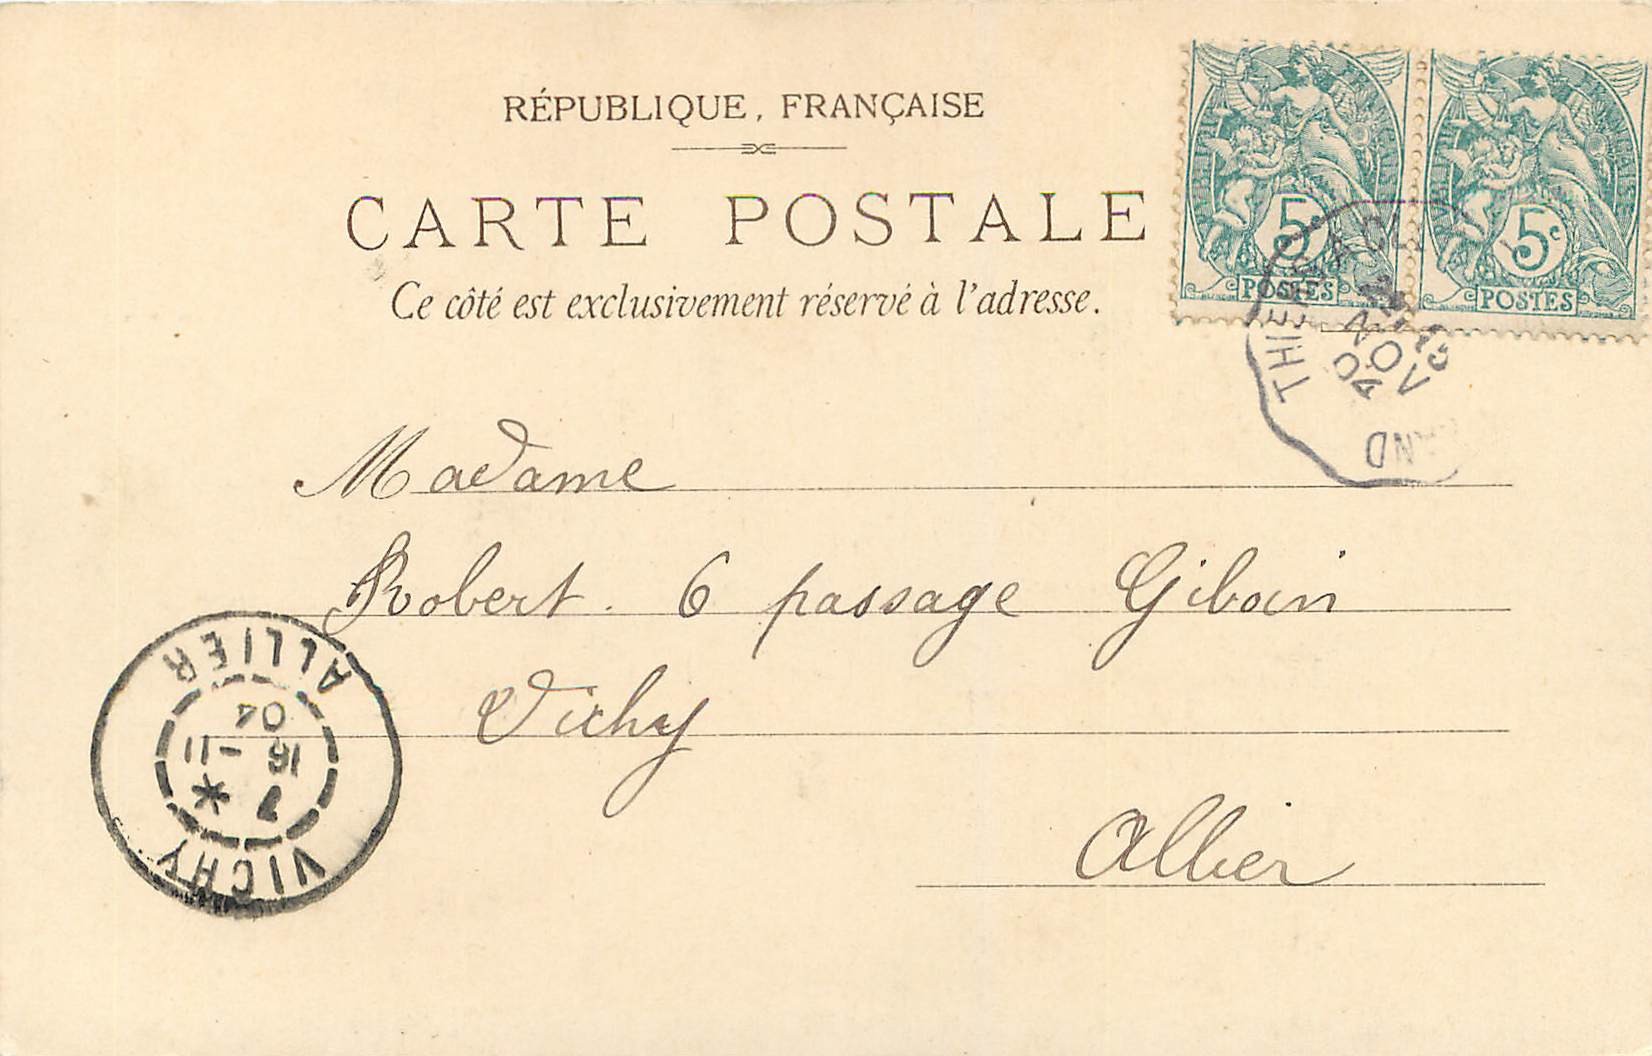 RÉPUBLIQUE, FRANÇAISE
CARTE POSTALE
Ce côté est exclusivement réservé à l'adresse.
5c
POSTES
5c
POSTES
NOV
04
Madame
Robert. 6 passage Giboin
Vichy
Allier
VICHY
16 -11
04
ALLIER